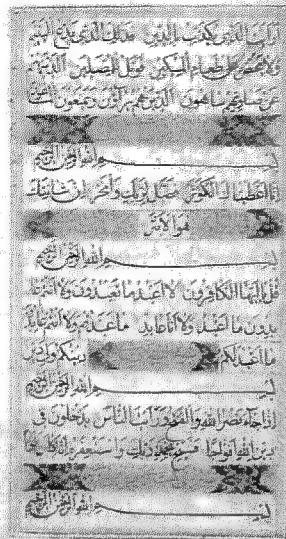 أرأيت الذي يكذب بالدين فذلك الذي يدع اليتيم
ولا يحض على طعام المسكين فويل للمصلين الذين هم
عن صلاتهم ساهون الذين هم يراؤن ويمنعون الماعون
بسم الله الرحمن الرحيم
انا اعطيناك الكوثر فصل لربك وانحر ان شانئك
هو الابتر
بسم الله الرحمن الرحيم
قل يا ايها الكافرون لا اعبد ما تعبدون ولا انتم عا
بدون ما اعبد ولا انا عابد ما عبدتم ولا انتم عابدون
ما اعبد لكم دينكم ولي دين
بسم الله الرحمن الرحيم
اذا جاء نصر الله والفتح ورأيت الناس يدخلون في
دين الله افواجا فسبح بحمد ربك واستغفره انه كان توابا
بسم الله الرحمن الرحيم